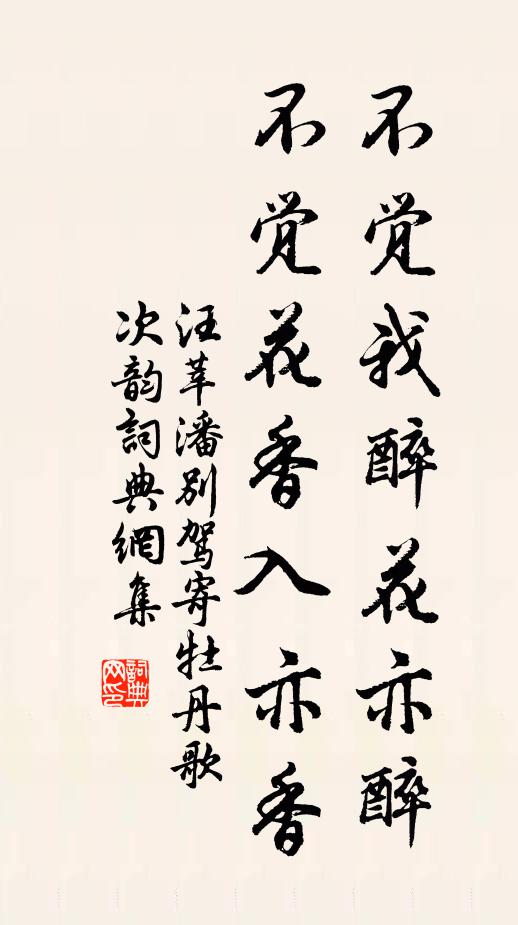 不觉我醉花亦醉
不觉花香入亦香
汪莘潘别驾寄牡丹歌
次韵词典網集
詞典网印